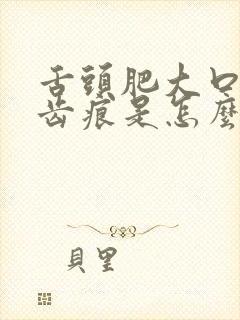 舌頭肥大口
齒痕是怎麼
貝里